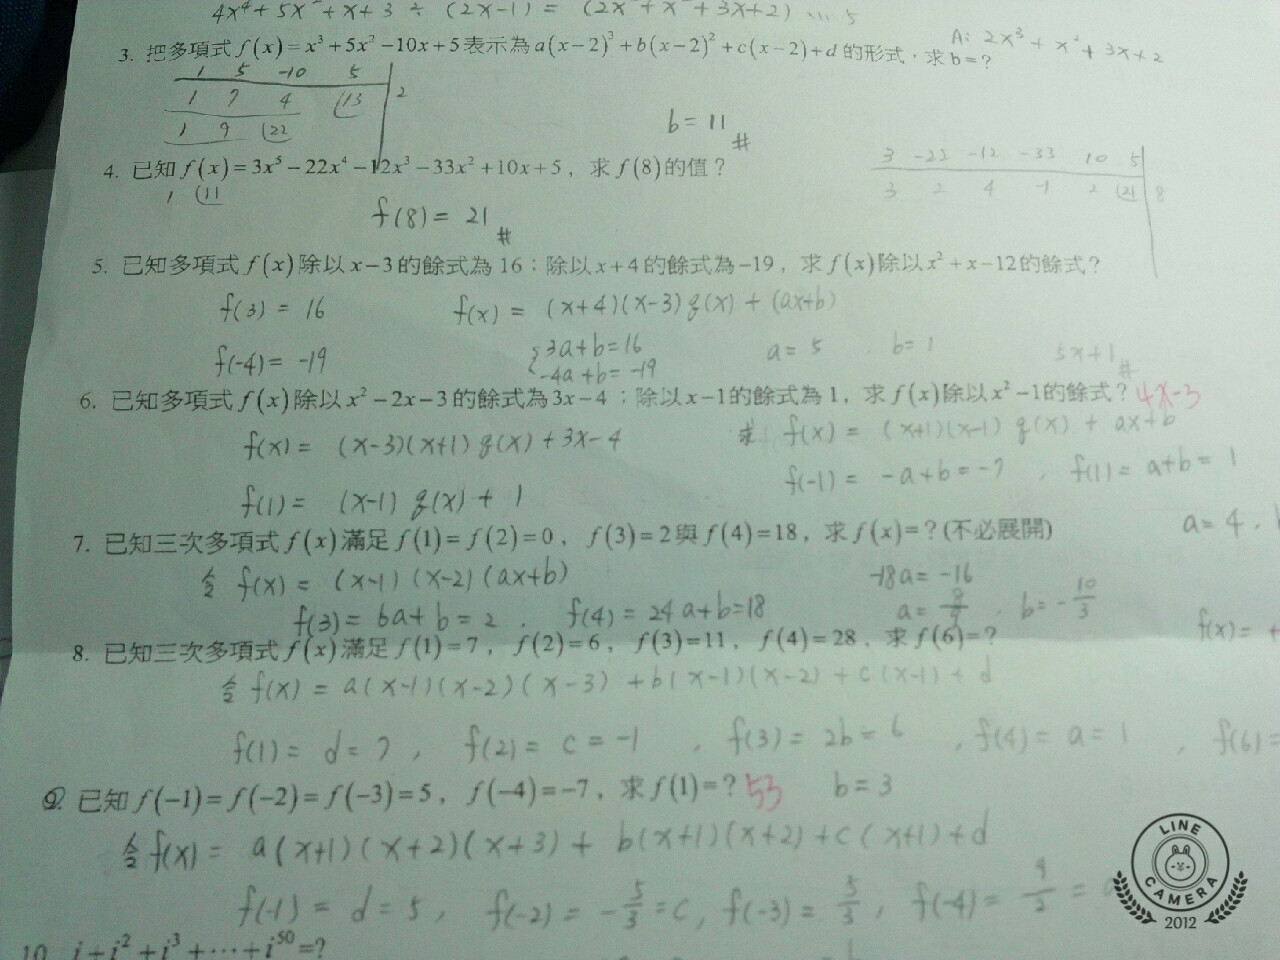 4x⁴ + 5x² + x + 3 ÷ (2x-1) = (2x³ + x² + 3x + 2) ... 5
3. 把多項式 f(x)=x³+5x²-10x+5 表示為 a(x-2)³+b(x-2)²+c(x-2)+d 的形式，求 b=?
A: 2x³ + x² + 3x + 2
1 5 -10 5
1 7 4 13 2
1 9 22
b = 11 #
4. 已知 f(x)=3x⁵-22x⁴-12x³-33x²+10x+5，求 f(8) 的值？
1 11
3 -22 -12 -33 10 5
3 2 4 -1 2 21 8
f(8) = 21 #
5. 已知多項式 f(x) 除以 x-3 的餘式為 16；除以 x+4 的餘式為 -19，求 f(x) 除以 x²+x-12 的餘式？
f(3) = 16 f(x) = (x+4)(x-3) q(x) + (ax+b)
f(-4) = -19 3a+b=16 a = 5 , b = 1 5x+1 #
-4a+b=-19
6. 已知多項式 f(x) 除以 x²-2x-3 的餘式為 3x-4；除以 x-1 的餘式為 1，求 f(x) 除以 x²-1 的餘式？ 4x-3
f(x) = (x-3)(x+1) q(x) + 3x-4 求 f(x) = (x+1)(x-1) q(x) + ax+b
f(-1) = -a+b = -7 , f(1) = a+b = 1
f(1) = (x-1) q(x) + 1
a = 4 ,
7. 已知三次多項式 f(x) 滿足 f(1)=f(2)=0，f(3)=2 與 f(4)=18，求 f(x)=？(不必展開)
令 f(x) = (x-1)(x-2)(ax+b) -18a = -16
f(3) = 6a + b = 2 , f(4) = 24a+b=18 a = 8/9 , b = -10/3
f(x) =
8. 已知三次多項式 f(x) 滿足 f(1)=7，f(2)=6，f(3)=11，f(4)=28，求 f(6)=？
令 f(x) = a(x-1)(x-2)(x-3) + b(x-1)(x-2) + c(x-1) + d
f(1) = d = 7 , f(2) = c = -1 , f(3) = 2b = 6 , f(4) = a = 1 , f(6) =
b = 3
9. 已知 f(-1)=f(-2)=f(-3)=5，f(-4)=-7，求 f(1)=？ 53
令 f(x) = a(x+1)(x+2)(x+3) + b(x+1)(x+2) + c(x+1) + d
f(-1) = d = 5 , f(-2) = -5/3 = c , f(-3) = 5/3 , f(-4) =
10. i+i²+i³+⋯+i⁵⁰=?
LINE CAMERA
2012